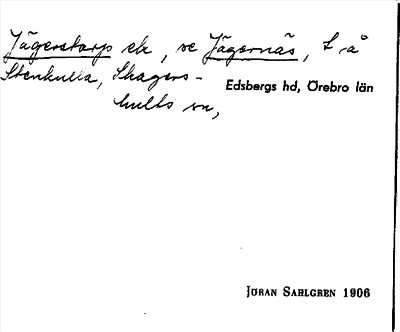 Jägerstorps ek, se Jägernäs, t. å
Stenkulla, Skagers-
hults sn,
Edsbergs hd, Örebro län
JÖRAN SAHLGREN 1906